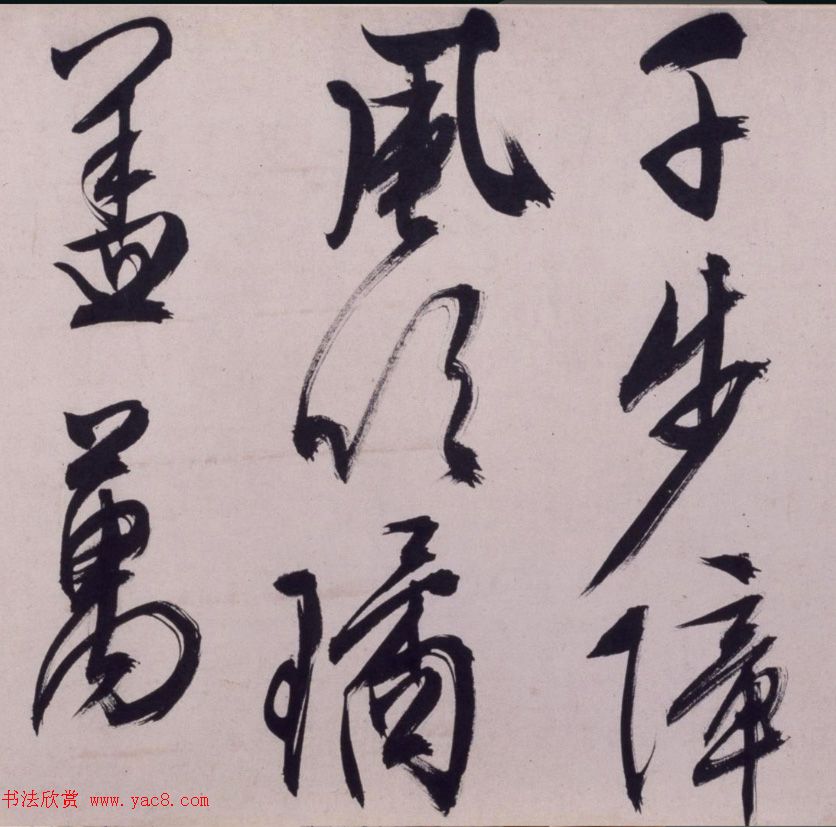 千步障
風璚
蓋萬
书法欣赏 www.yac8.com